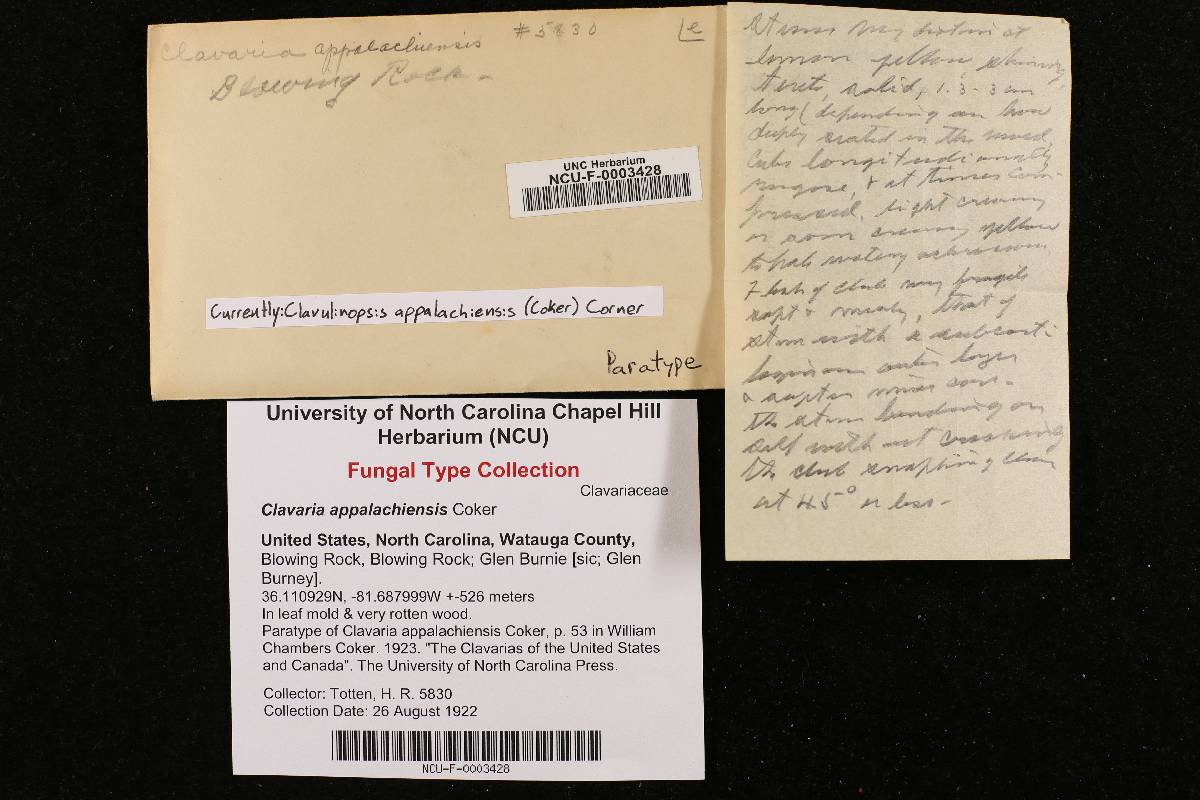 Clavaria appalachiensis #5830
Blowing Rock -
UNC Herbarium
NCU-F-0003428
Currently: Clavulinopsis appalachiensis (Coker) Corner
Paratype
Stems very distinct at
lemon yellow, shining,
terete, solid, 1.3-3 cm
long (depending on how
deeply seated in the wood,
Clubs longitudinally
rugose, & at times com-
pressed, light creamy
or some creamy yellow
to pale watery
Flesh of club very fragile
soft & mealy, that of
stem with a subcarti-
laginous outer layer
& softer inner core -
the stem bending on
self without cracking
the club snapping clean
at 45° or less -
University of North Carolina Chapel Hill
Herbarium (NCU)
Fungal Type Collection
Clavariaceae
Clavaria appalachiensis Coker
United States, North Carolina, Watauga County,
Blowing Rock, Blowing Rock; Glen Burnie [sic; Glen
Burney].
36.110929N, -81.687999W +-526 meters
In leaf mold & very rotten wood.
Paratype of Clavaria appalachiensis Coker, p. 53 in William
Chambers Coker. 1923. "The Clavarias of the United States
and Canada". The University of North Carolina Press.
Collector: Totten, H. R. 5830
Collection Date: 26 August 1922
NCU-F-0003428